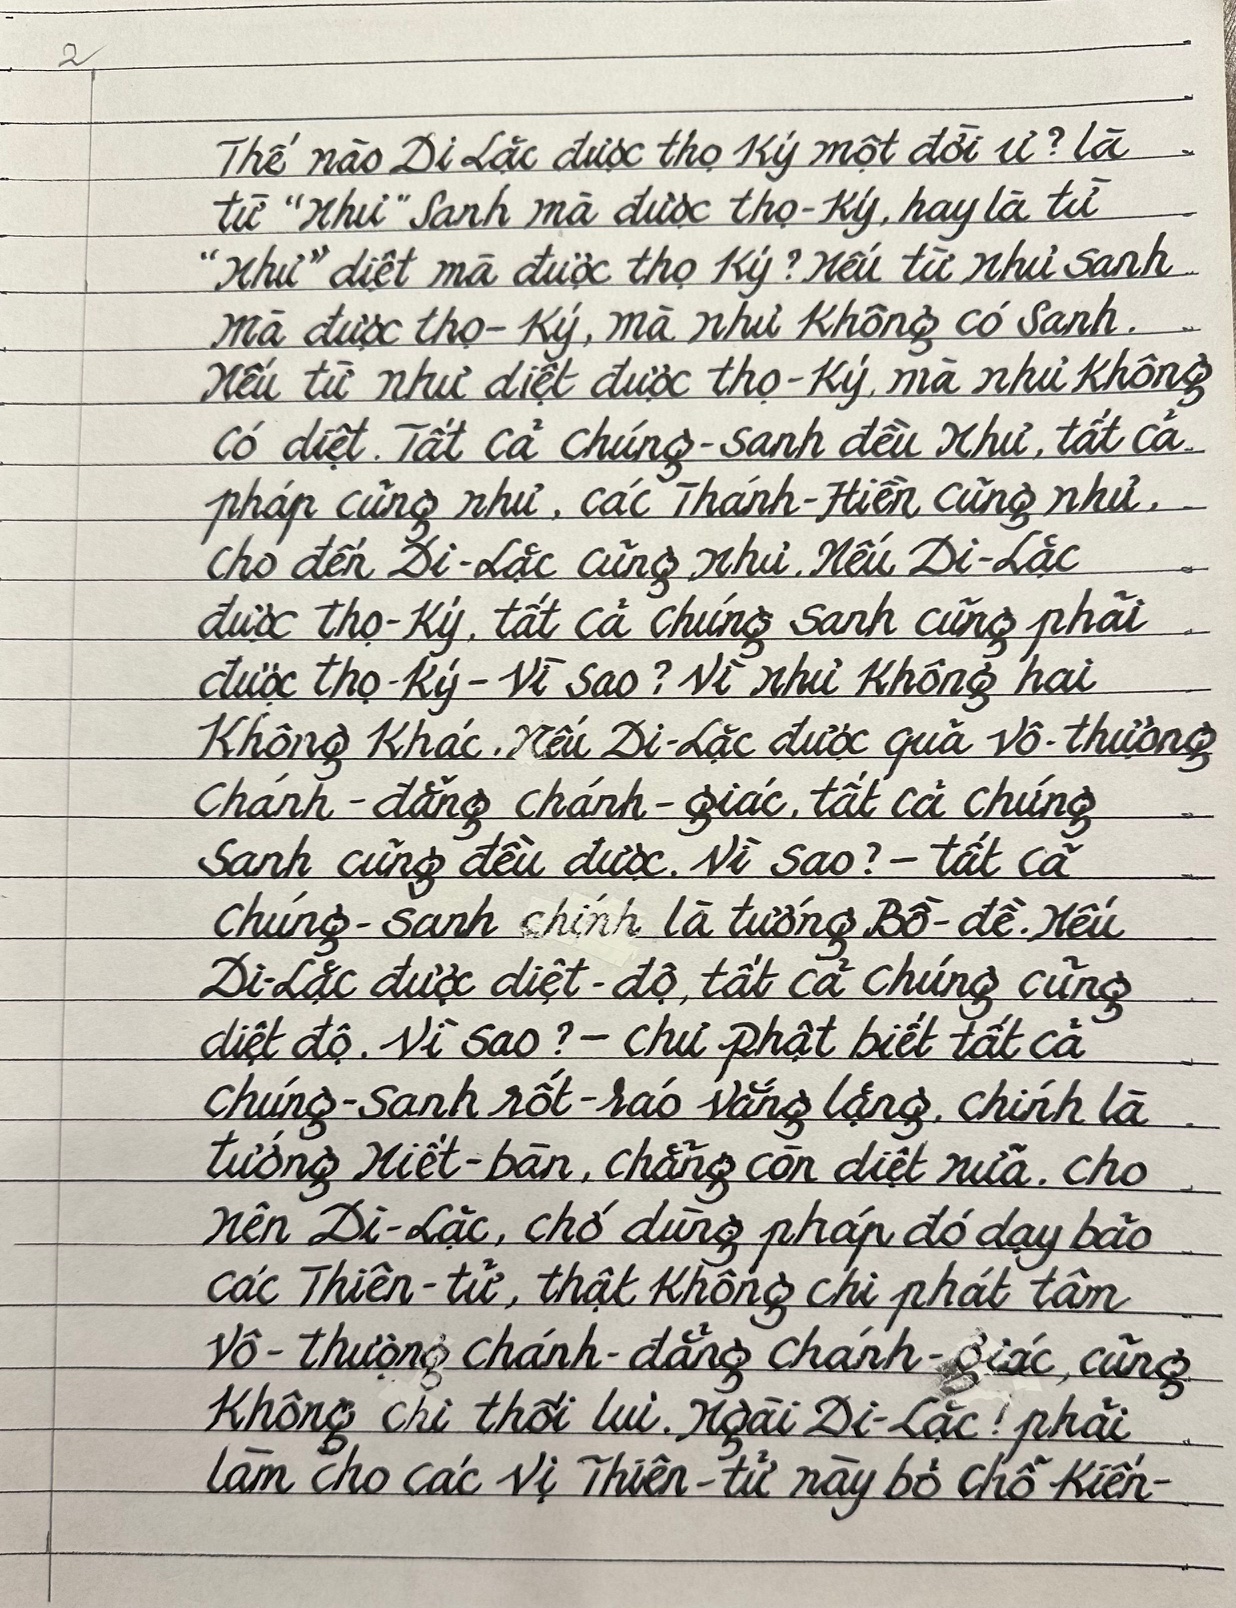 2
Thế nào Di Lặc được thọ Ký một đời ư? là
từ "Như" Sanh mà được thọ-Ký, hay là từ
"Như" diệt mà được thọ Ký? Nếu từ như sanh
mà được thọ-Ký, mà như Không có Sanh.
Nếu từ như diệt được thọ-Ký, mà như Không
có diệt. Tất cả chúng-sanh đều Như, tất cả
pháp cũng như, các Thánh-Hiền cũng như,
cho đến Di-Lặc cũng như. Nếu Di-Lặc
được thọ-Ký, tất cả chúng sanh cũng phải
được thọ-Ký - Vì sao? Vì như Không hai
Không Khác. Nếu Di-Lặc được quả Vô-thượng
chánh-đẳng chánh-giác, tất cả chúng
sanh cũng đều được. Vì sao? - tất cả
chúng-sanh chính là tướng Bồ-đề. Nếu
Di-Lặc được diệt-độ, tất cả chúng cũng
diệt độ. Vì sao? - chư Phật biết tất cả
chúng-sanh rốt-ráo vắng lặng, chính là
tướng Niết-bàn, chẳng còn diệt nữa. cho
nên Di-Lặc, chớ dùng pháp đó dạy bảo
các Thiên-tử, thật Không chi phát tâm
Vô-thượng chánh-đẳng chánh-giác, cũng
Không chi thối lui. Ngài Di-Lặc! phải
làm cho các Vị Thiên-tử này bỏ chỗ Kiến-